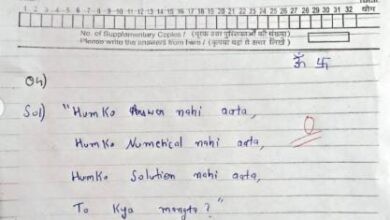 1 2 3 4 5 6 7 8 9 10 11 12 13 14 15 16 17 18 19 20 21 22 23 24 25 26 27 28 29 30 31 32 योग
No. of Supplementary Copies / (पूरक उत्तर पुस्तिकाओं की संख्या)
Please write the answers from here / (कृपया यहां से उत्तर लिखें)
ॐ 卐
Q4)
Sol) "HumKo Answer nahi aata,
HumKo Numerical nahi aata,
0
HumKo Solution nahi aata,
To Kya mangta?"